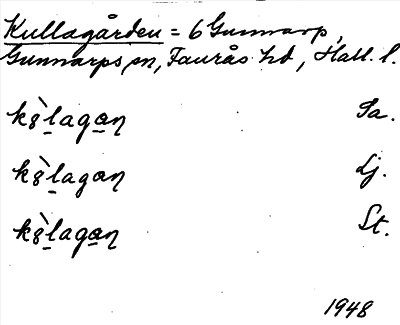 Kullagården = 6 Gunnarp,
Gunnarps sn, Faurås hd, Hall. l.
kö̀lagaɳ Sa.
kö̀lagaɳ Lj.
kö̀lagaɳ St.
1948